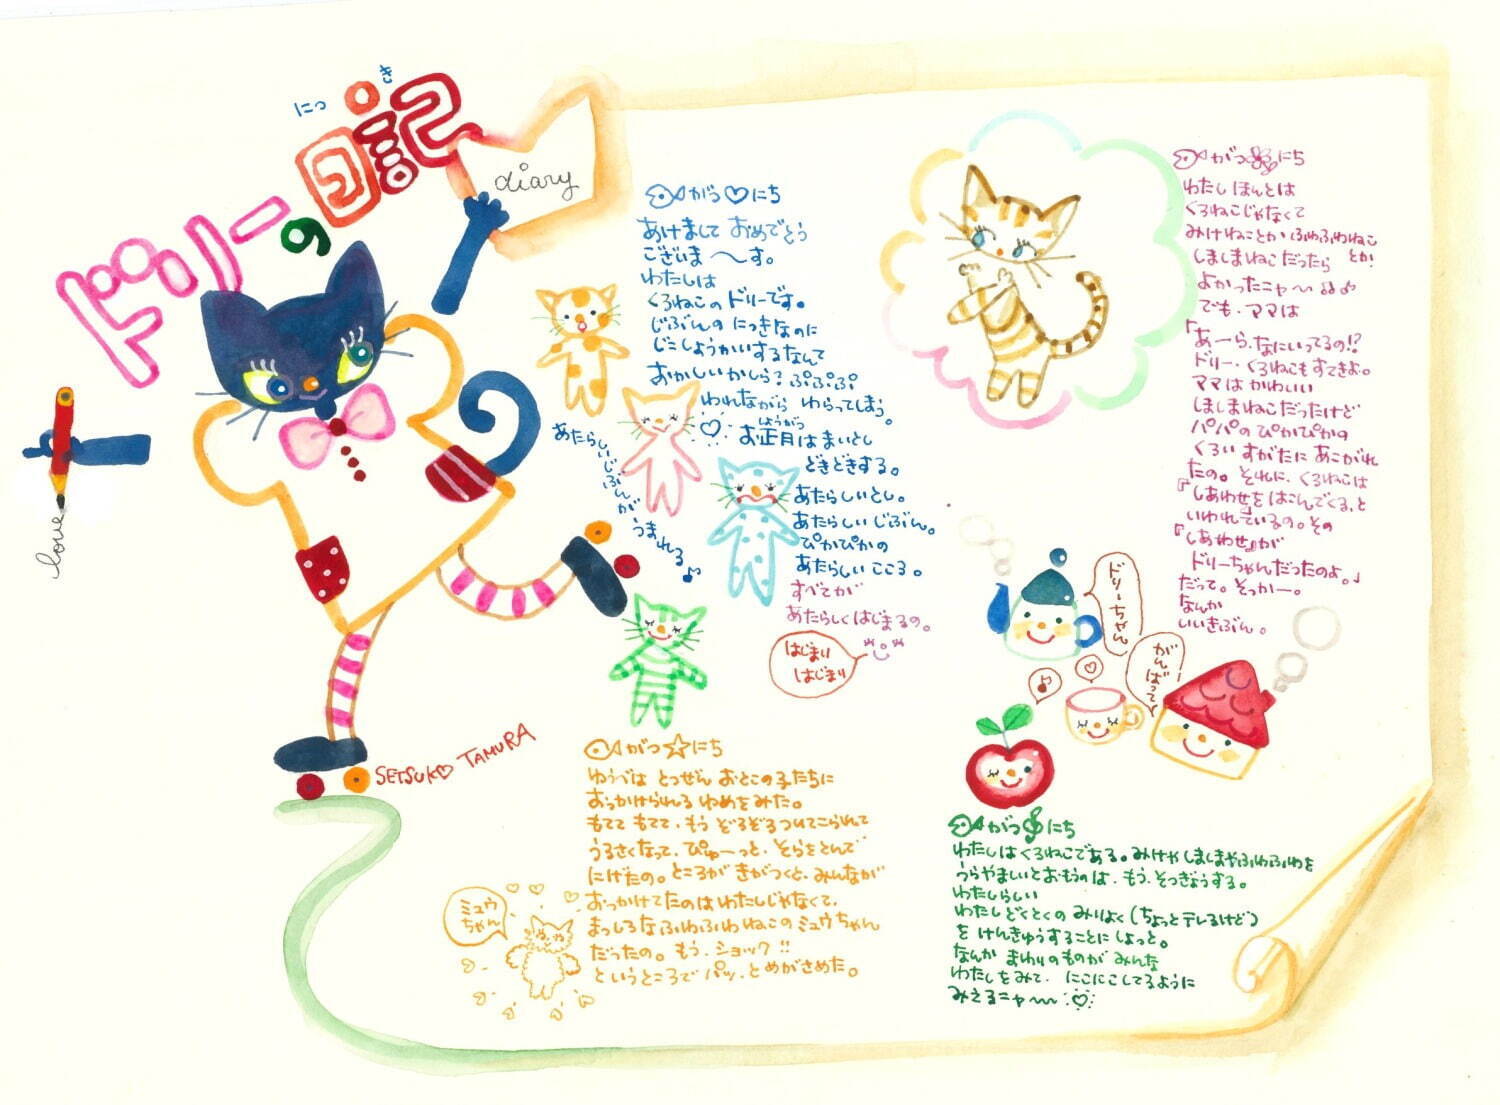 にっき
ドリーの日記
diary
love
SETSUKO TAMURA
がつ にち
あけまして おめでとう
ございま〜す。
わたしは
くろねこの ドリーです。
じぶんの にっきなのに
じこしょうかいするなんて
おかしいかしら? ぷぷぷぷ
われながら わらってしまう。
しょうがつ
お正月は まいとし
どきどきする。
あたらしいとし。
あたらしい じぶん。
ぴかぴかの
あたらしい こころ。
すべてが
あたらしくはじまるの。
はじまり
はじまり
あたらしいじぶんが うまれる♪
がつ☆にち
ゆうべは とつぜん おとこの子たちに
おっかけられる ゆめをみた。
もてて もてて、もう ぞろぞろついてこられて
うるさくなって、ぴゅーっと、そらをとんで
にげたの。ところが きがつくと、みんなが
おっかけてたのは わたしじゃなくて、
まっしろな ふわふわ ねこの ミュウちゃん
だったの。もう、ショック!!
というところで パッ、とめがさめた。
ミュウ
ちゃん
がつ にち
わたし ほんとは
くろねこじゃなくて
みけねことか ふわふわねことか
しましまねこだったら
よかったニャ〜♪♪
でも、ママは
「あーら、なにいってるの!?
ドリー、くろねこもすてきよ。
ママは かわいい
しましまねこだったけど
パパの ぴかぴかの
くろい すがたに あこがれ
たの。それに、くろねこは
『しあわせを はこんでくる』と
いわれているの。その
『しあわせ』が
ドリーちゃんだったのよ。」
だって。そっかー。
なんか
いいきぶん。
ドリーちゃん
がんばって
がつ にち
わたしは くろねこである。みけや しましまや ふわふわを
うらやましいと おもうのは、もう、そつぎょうする。
わたしらしい
わたしどくとくの みりょく(ちょっとテレるけど)
を けんきゅうすることに しよっと。
なんか まわりのものが みんな
わたしをみて、にこにこしてるように
みえるニャ〜